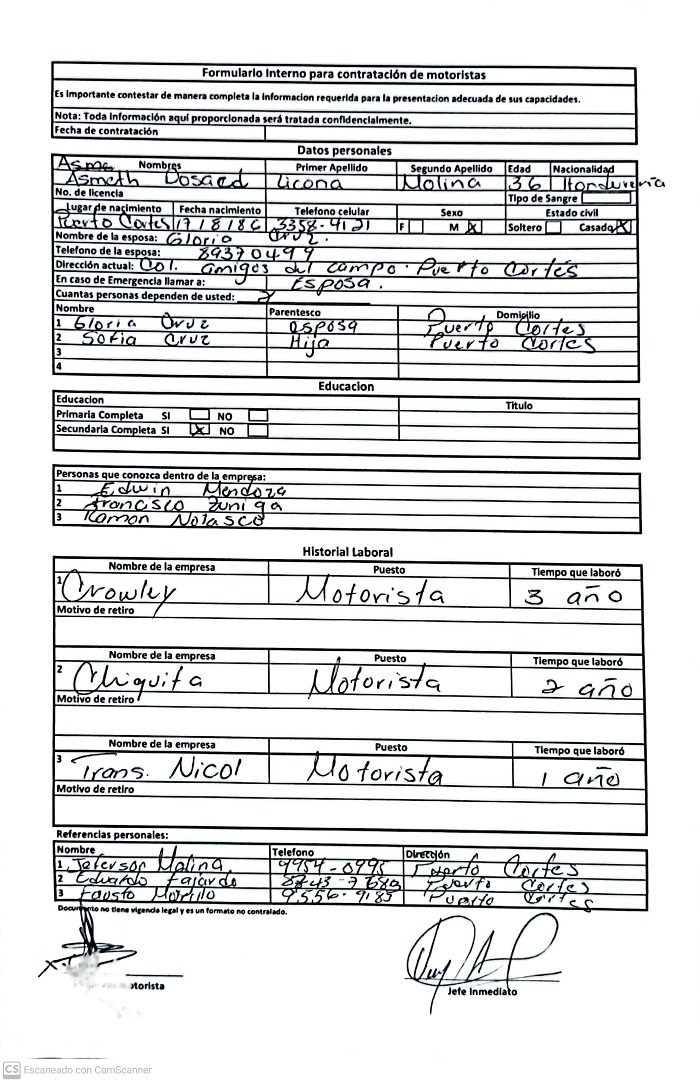 Formulario Interno para contratación de motoristas
Es importante contestar de manera completa la informacion requerida para la presentation adecuada de sus capacidades.
Nota: Toda información aquí proporcionada será tratada confidencialmente.
Fecha de contratación
Datos personales
Nombres Primer Apellido Segundo Apellido Edad Nacionalidad
Asmeth Dosaed Licona Molina 36 Hondureña
No. de licencia Tipo de Sangre
Lugar de nacimiento Fecha nacimiento Telefono celular Sexo Estado civil
Puerto Cortes 17/8/86 3358-4121 F M X Soltero Casado X
Nombre de la esposa: Gloria Cruz.
Telefono de la esposa: 89370499
Dirección actual: Col. amigos del campo. Puerto Cortés
En caso de Emergencia llamar a: Esposa.
Cuantas personas dependen de usted: 2
Nombre Parentesco Domicilio
1 Gloria Cruz esposa Puerto Cortes
2 Sofia Cruz Hija Puerto Cortes
3
4
Educacion
Educacion Titulo
Primaria Completa SI NO
Secundaria Completa SI X NO
Personas que conozca dentro de la empresa:
1 Edwin Mendoza
2 Francisco Zuniga
3 Ramon Nolasco
Historial Laboral
Nombre de la empresa Puesto Tiempo que laboró
1 Crowley Motorista 3 año
Motivo de retiro
Nombre de la empresa Puesto Tiempo que laboró
2 Chiquita Motorista 2 año
Motivo de retiro
Nombre de la empresa Puesto Tiempo que laboró
3 Trans. Nicol Motorista 1 año
Motivo de retiro
Referencias personales:
Nombre Telefono Dirección
1 Jeferson Molina 9954-0995 Puerto Cortes
2 Eduardo Fajardo Puerto Cortes
3 Fausto Murillo 9556-9185 Puerto Cortes
Documento no tiene vigencia legal y es un formato no contralado.
Jefe Inmediato
CS Escaneado con CamScanner